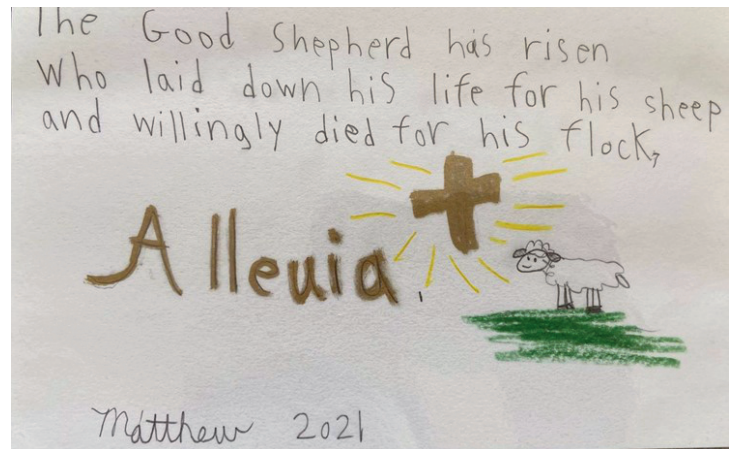 The Good Shepherd has risen
Who laid down his life for his sheep
and willingly died for his flock,
Alleuia.
Matthew 2021